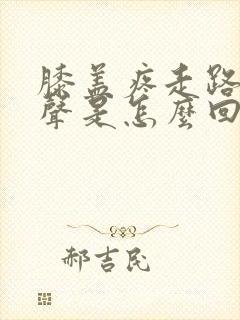 膝盖疼走路
聲是怎麼回
郝吉民